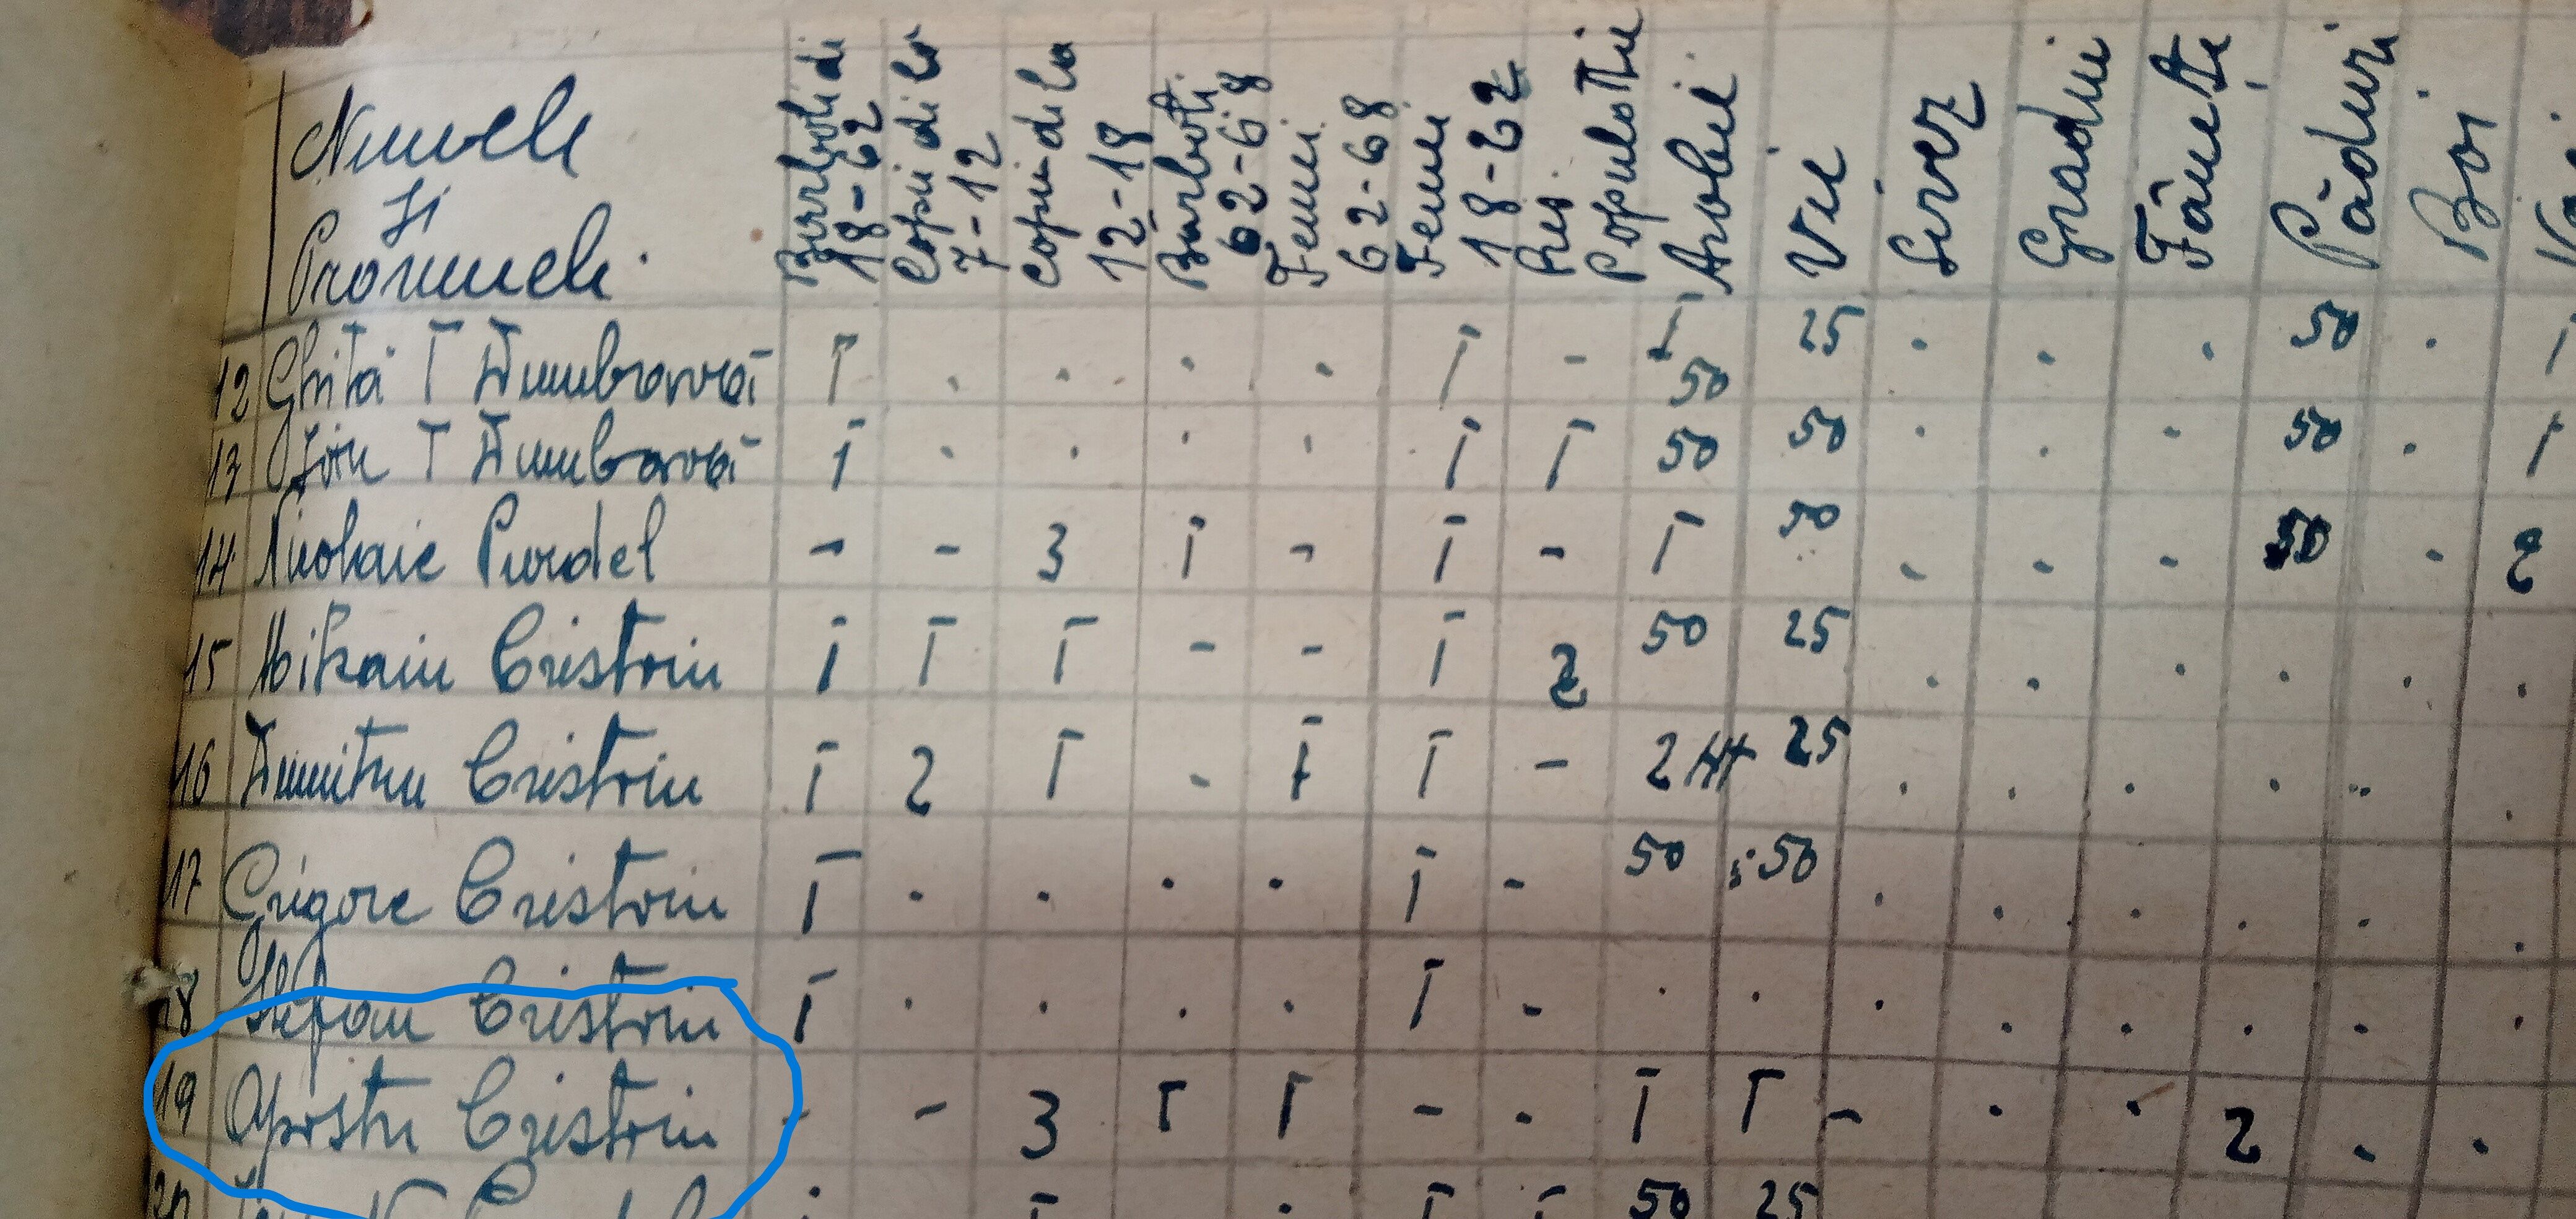 Numele și Pronumele Barbati de 18-62 Copii de la 7-12 Copii de la 12-18 Barbati 62-68 Femei 62-68 Femei 18-62 Res. Populatie Arabil Vie Livez Gradini Fânețe Păduri Boi
12 Ghita I Dumbrava I . . . . I - I 50 25 . . . 50 . I
13 Ion I Dumbrava I . . . . I I 50 50 . . . 50 . I
14 Nicolaie Purdel - - 3 I - I - I 50 . . . 50 - 2
15 Mihaiu Cristoiu I I I - - I 2 50 25 . . . . . .
16 Dumitru Cristoiu I 2 I - I I - 2 Ht 25 . . . . .. .
17 Grigore Cristoiu I . . . . I - 50 50 . . . . . .
18 Stefan Cristoiu I . . . . I - . . . . . . . .
19 Apostu Cristoiu - - 3 I I - . I I - . . 2 . .
20 50 25